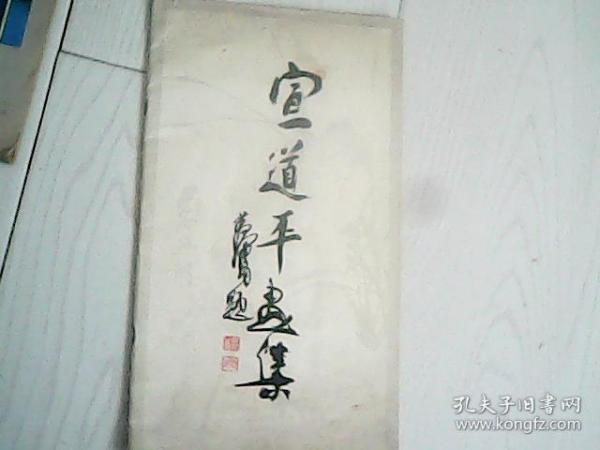 宣道平画集
黄胄题
孔夫子旧书网
www.kongfz.com